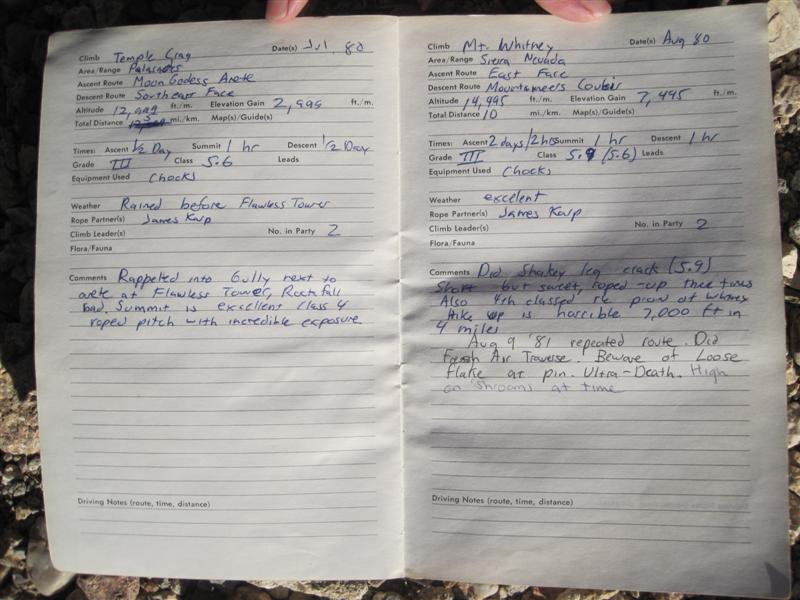 Climb Temple Crag Date(s) Jul 80
Area/Range Palisades
Ascent Route Moon Godess Arete
Descent Route Southeast Face
Altitude 12,999 ft./m. Elevation Gain 2,999 ft./m.
Total Distance mi./km. Map(s)/Guide(s)
Times: Ascent 1/2 Day Summit 1 hr Descent 1/2 Day
Grade III Class 5.6 Leads
Equipment Used Chocks
Weather Rained before Flawless Tower
Rope Partner(s) James Karp
Climb Leader(s) No. in Party 2
Flora/Fauna
Comments Rappelled into Gully next to
arete at Flawless Tower, Rockfall
bad. Summit is excellent class 4
roped pitch with incredible exposure.
Driving Notes (route, time, distance)
Climb Mt. Whitney Date(s) Aug 80
Area/Range Sierra Nevada
Ascent Route East Face
Descent Route Mountaineers Couloir
Altitude 14,495 ft./m. Elevation Gain 7,495 ft./m.
Total Distance 10 mi./km. Map(s)/Guide(s)
Times: Ascent 2 days/2hrs Summit 1 hr Descent 1 hr
Grade III Class 5.9 (5.6) Leads
Equipment Used Chocks
Weather excelent
Rope Partner(s) James Karp
Climb Leader(s) No. in Party 2
Flora/Fauna
Comments Did Shakey leg crack (5.9)
Short but sweet, roped-up three times
Also 4th classed the prow of Whitney
Hike up is horrible 7,000 ft in
4 miles
Aug 9 '81 repeated route. Did
Fresh Air Traverse. Beware of Loose
flake at pin. Ultra-Death. High
on shrooms at time
Driving Notes (route, time, distance)